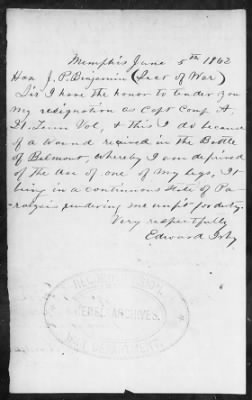 Memphis June 5th 1862
Hon J. P. Benjamin (Sect of War)
Sir I have the honor to tender you
my resignation as Capt Comp A,
21. Tenn Vol, & this I do because
of a wound received in the Battle
of Belmont, whereby I am deprived
of the use of one of my legs, It
being in a continuous State of Pa-
ralysis rendering me unfit for duty.
Very respectfully
Edward Irby
REBEL ARCHIVES,
WAR DEPARTMENT